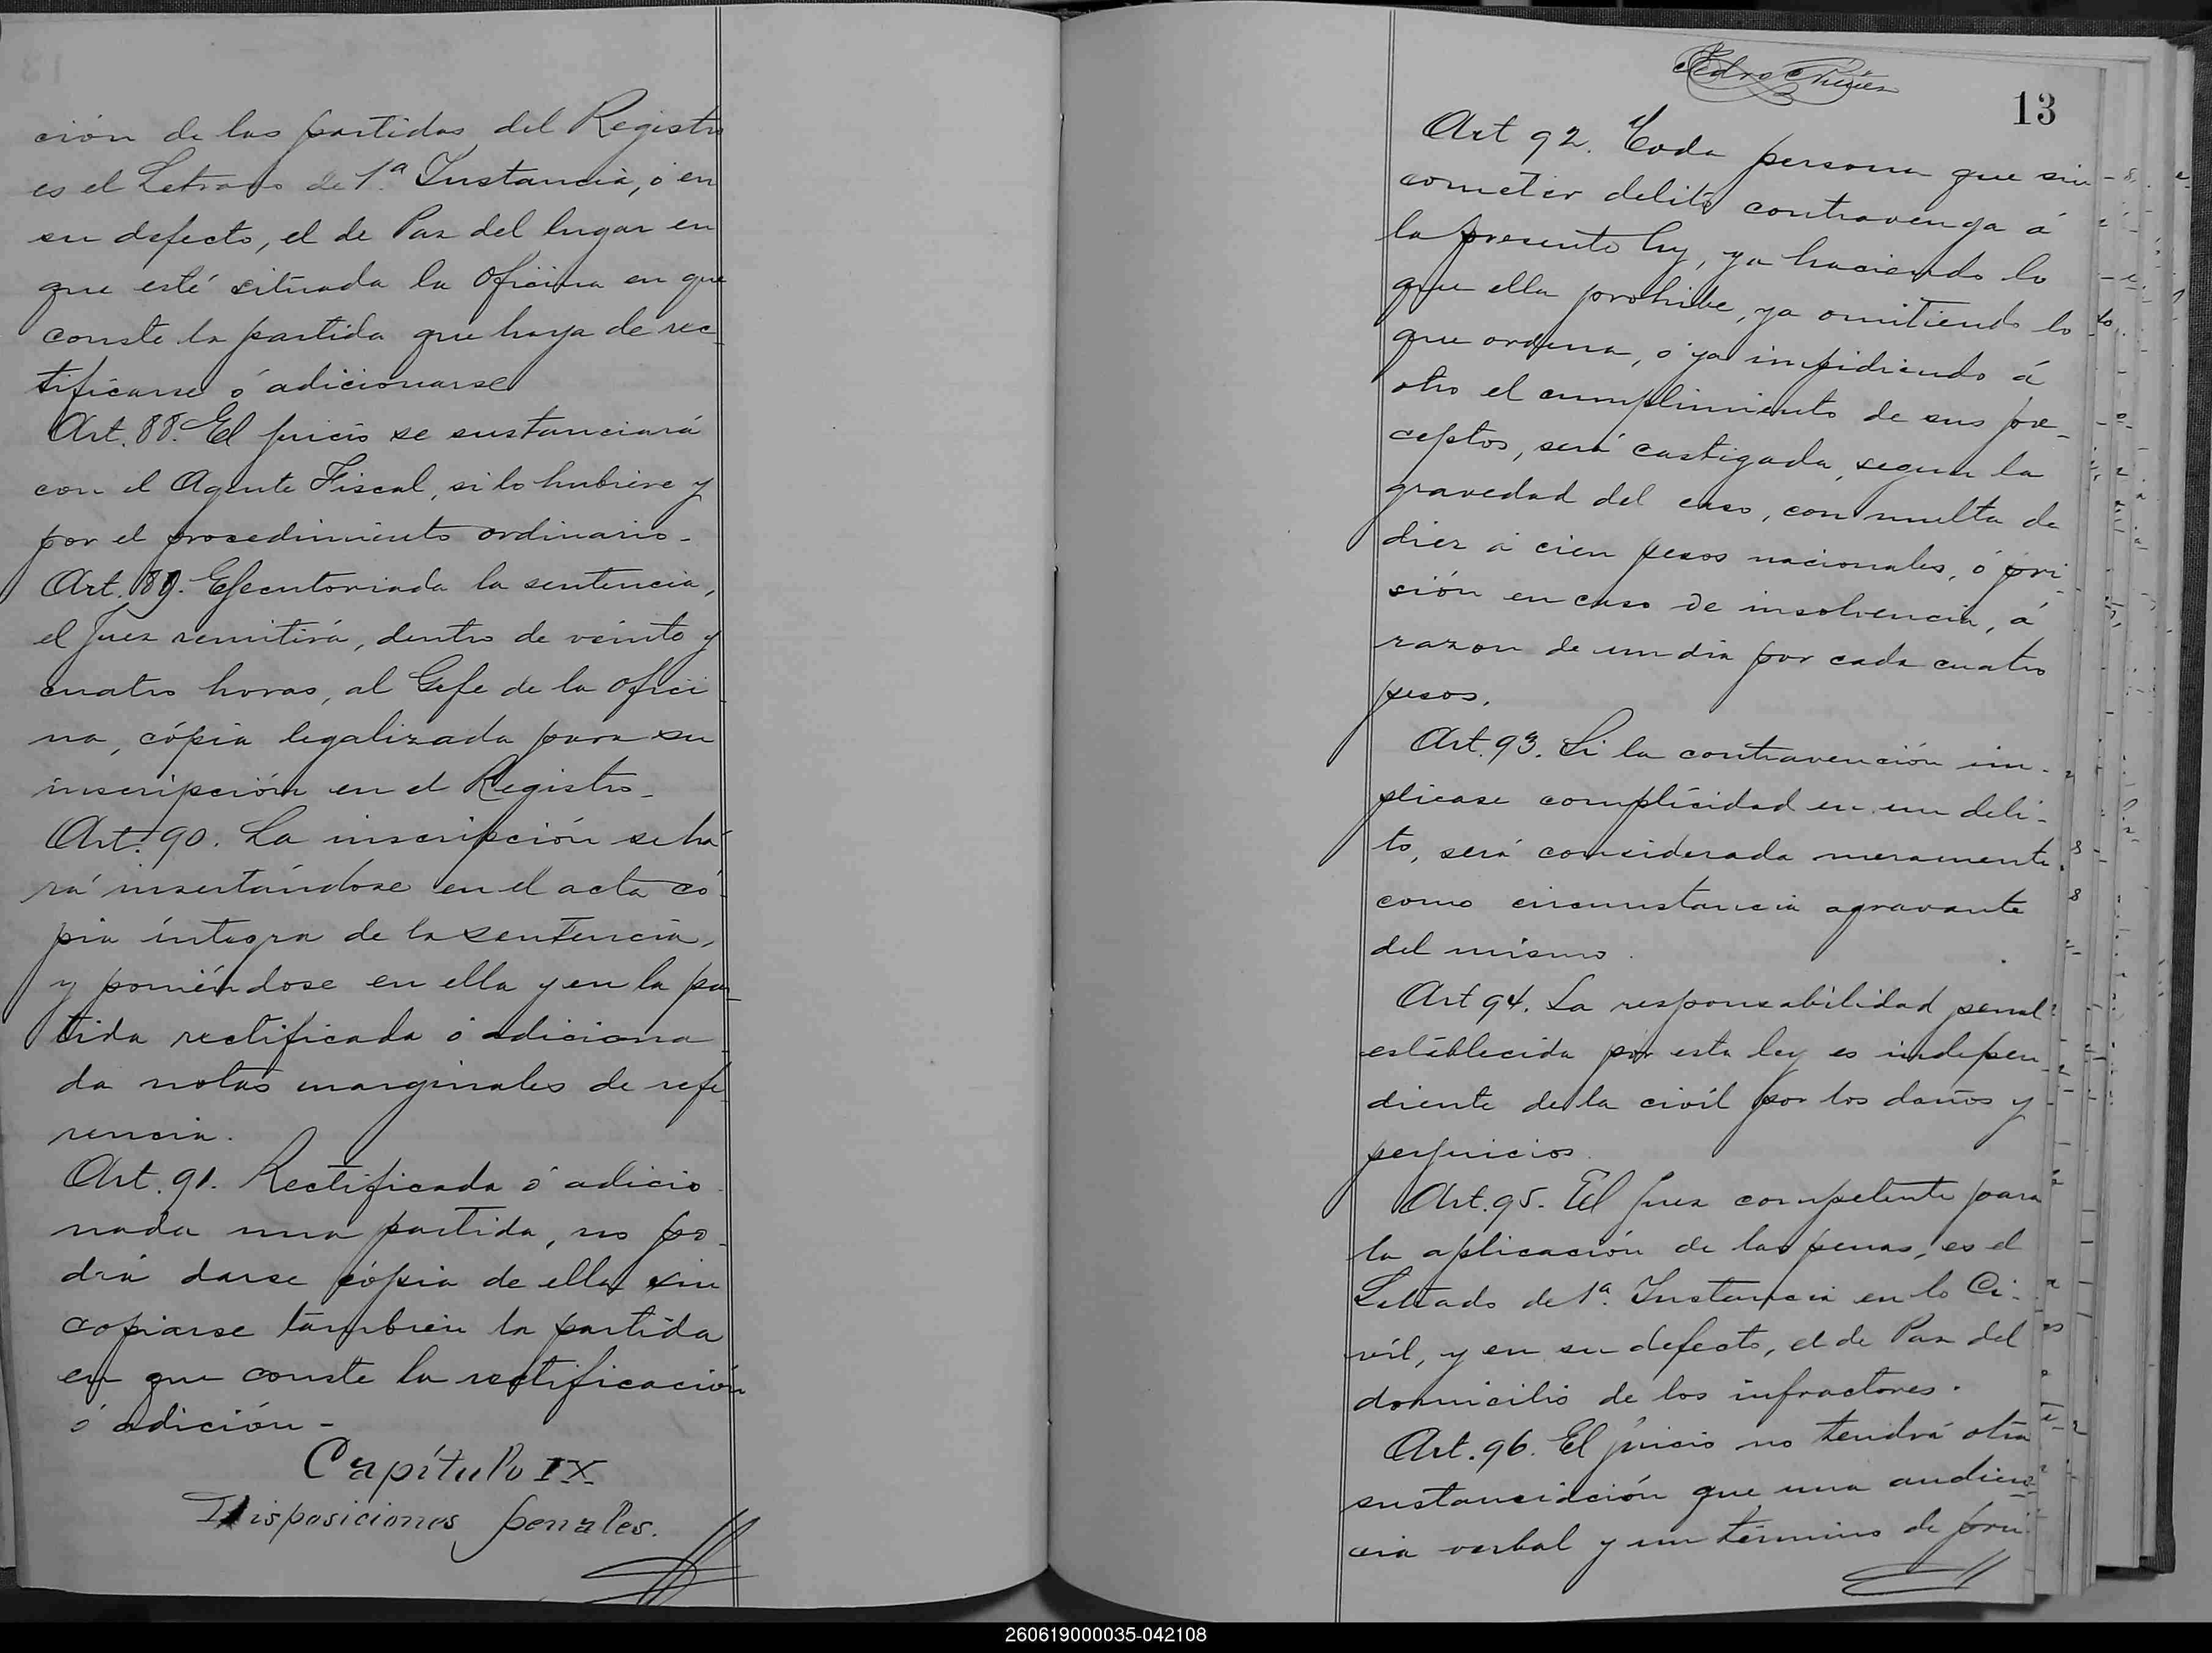 ción de las partidas del Registro
es el Letrado de 1.ª Instancia, ó en
su defecto, el de Paz del lugar en
que esté situada la oficina en que
conste la partida que haya de rec-
tificarse ó adicionarse
Art. 88. El juicio se sustanciará
con el Agente Fiscal, si lo hubiere y
por el procedimiento ordinario-
Art. 89. Ejecutoriada la sentencia,
el Juez remitirá, dentro de veinte y
cuatro horas, al Gefe de la ofici
na, cópia legalizada para su
inscripción en el Registro-
Art. 90. La inscripción se ha
rá insertándose en el acta có-
pia íntegra de la sentencia,
y poniéndose en ella y en la par-
tida rectificada ó adiciona
da notas marginales de refe
rencia.
Art. 91. Rectificada ó adicio
nada una partida, no po-
drá darse cópia de ella sin
copiarse tambien la partida
en que conste la rectificación
ó adición-
Capítulo IX
Disposiciones penales.
Pedro
13
Art 92. Toda persona que sin
cometer delito contravenga á
la presente ley, ya haciendo lo
que ella prohibe, ya omitiendo lo
que ordena, ó ya impidiendo á
otro el cumplimiento de sus pre-
ceptos, será castigada, segun la
gravedad del caso, con multa de
diez á cien pesos nacionales, ó pri-
sión en caso de insolvencia, á
razon de un dia por cada cuatro
pesos.
Art. 93. Si la contravención im-
plicase complicidad en un deli-
to, será considerada meramente
como circunstancia agravante
del mismo.
Art 94. La responsabilidad penal
establecida por esta ley es indepen
diente de la civil por los daños y
perjuicios.
Art. 95. El Juez competente para
la aplicación de las penas, es el
Letrado de 1ª. Instancia en lo Ci-
vil, y en su defecto, el de Paz del
domicilio de los infractores.
Art. 96. El juicio no tendrá otra
sustanciación que una audien
cia verbal y un término de pru
260619000035-042108